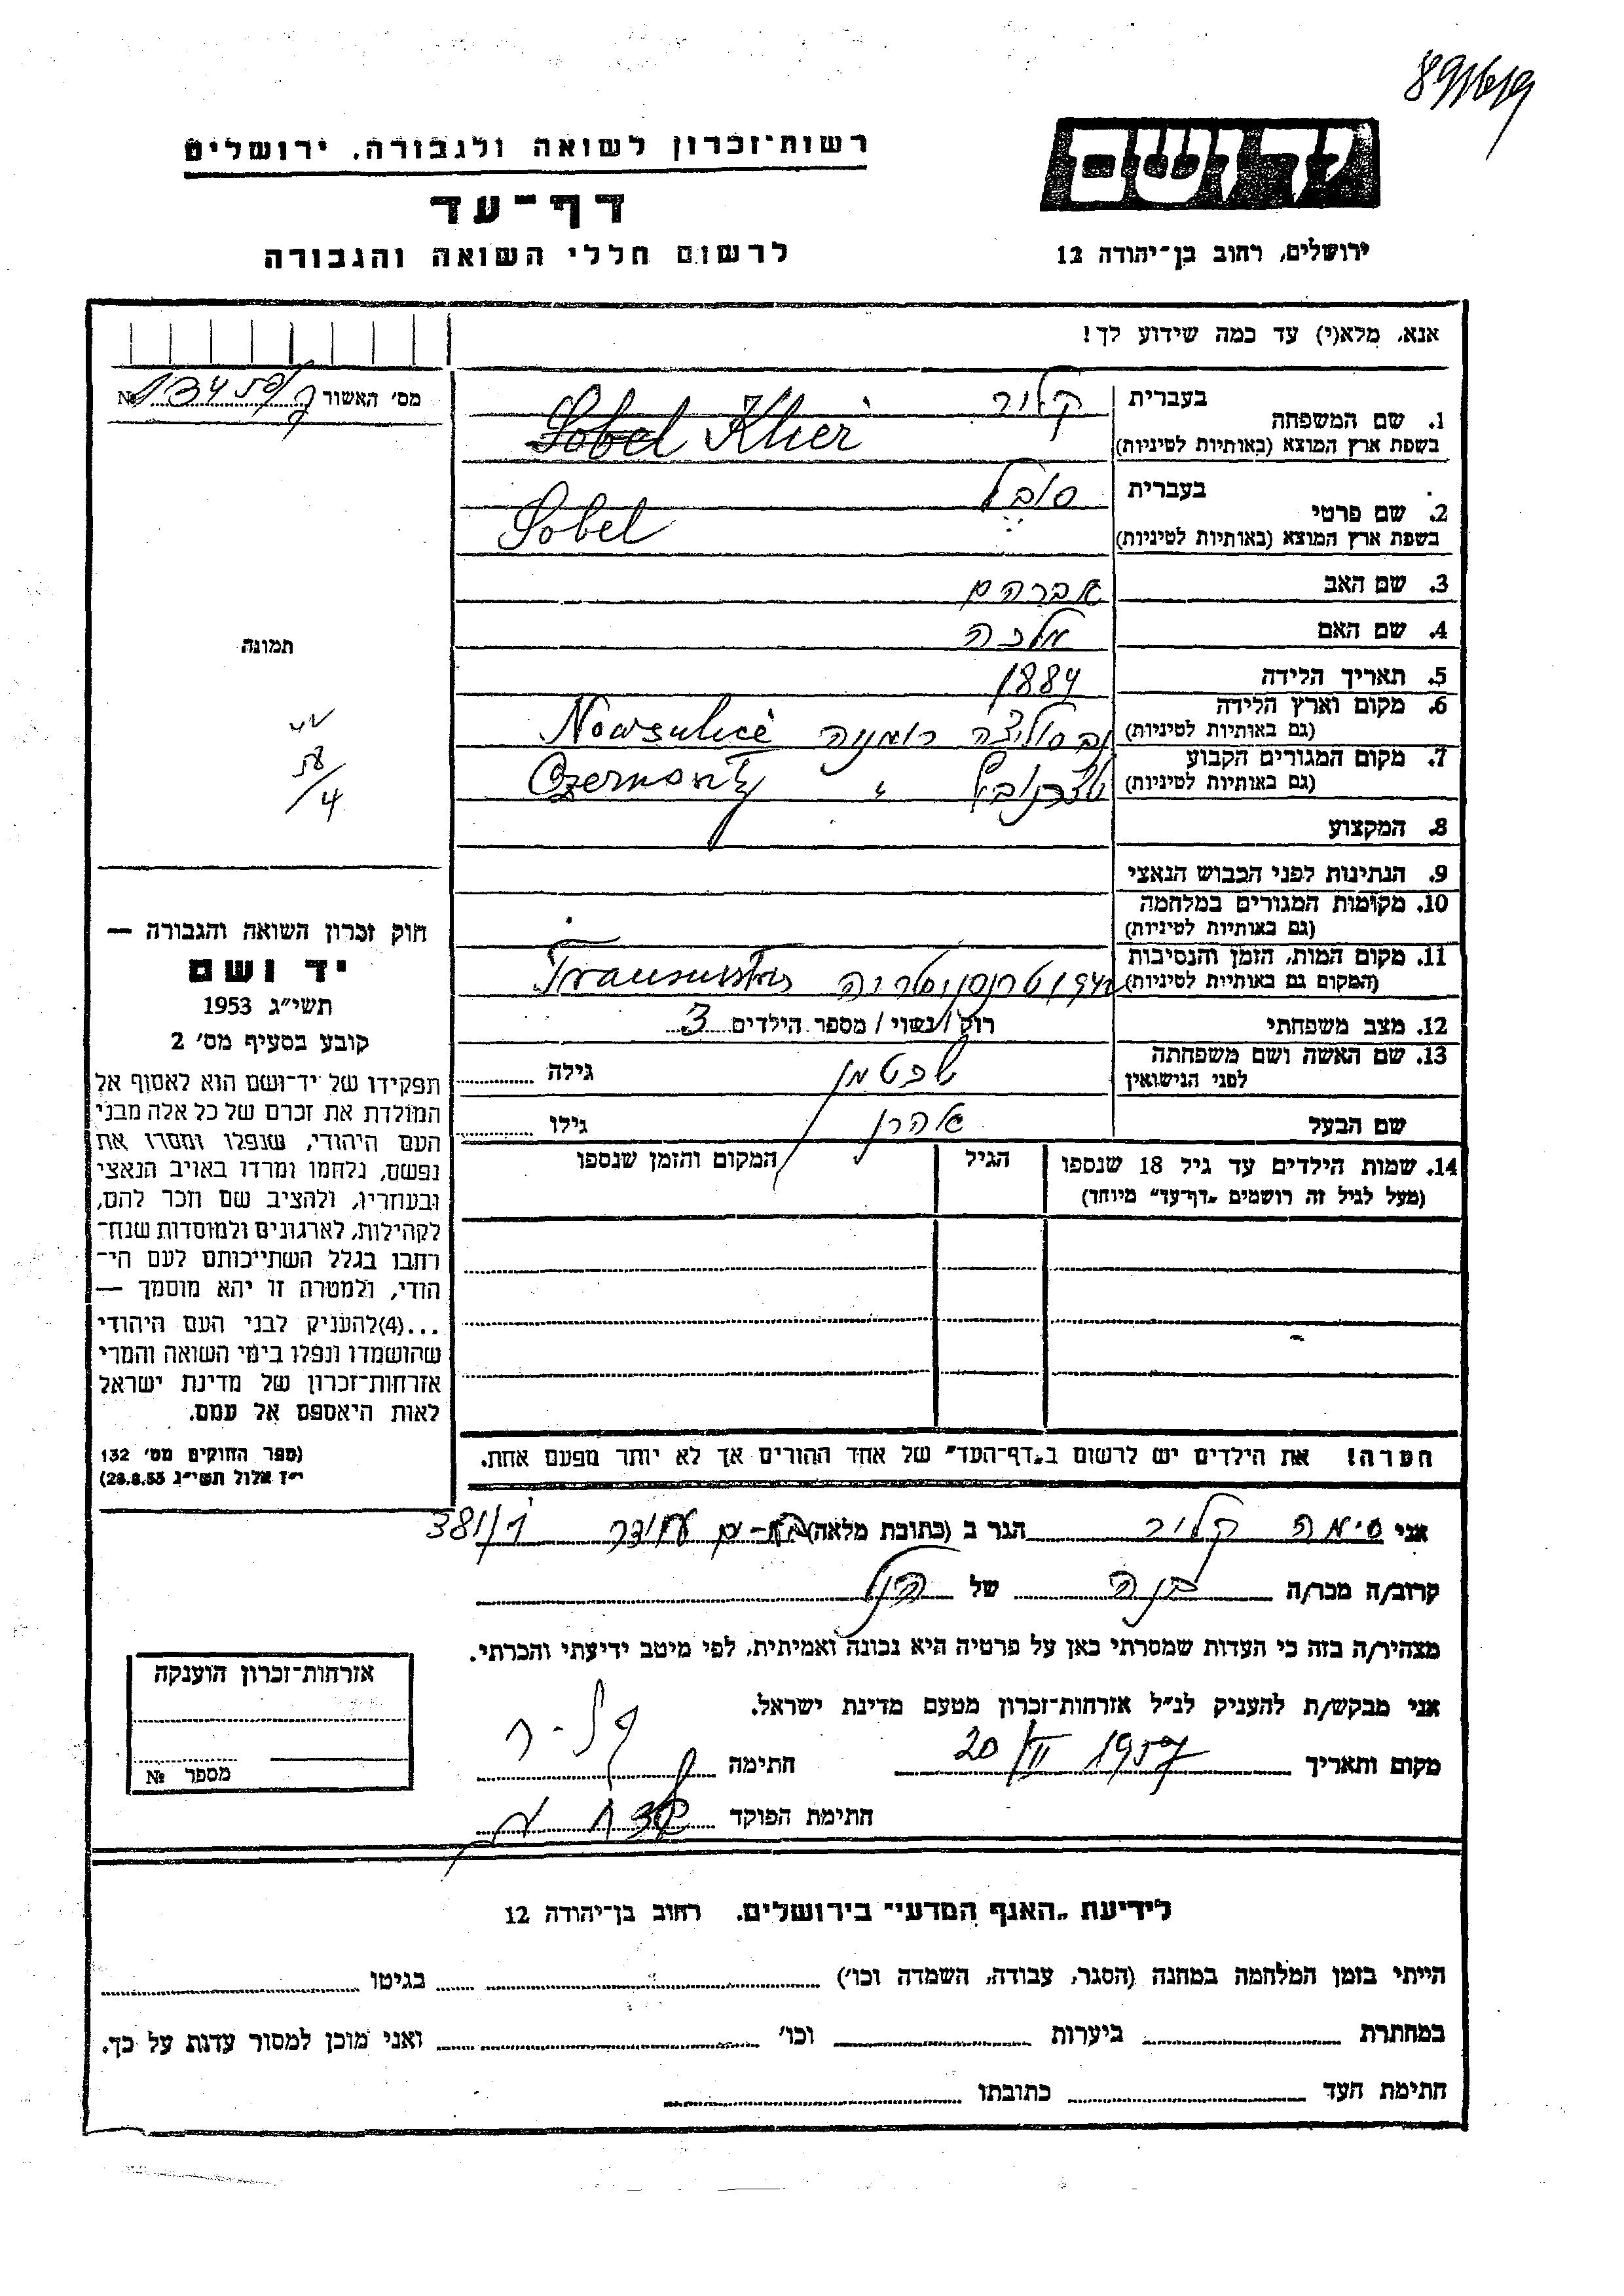 רשות־זכרון לשואה ולגבורה, ירושלים
דף־עד
לרשום חללי השואה והגבורה
יד ושם
ירושלים, רחוב בן־יהודה 12
אנא, מלא(י) עד כמה שידוע לך!
מס' האשור №
1. שם המשפחה
בעברית
בשפת ארץ המוצא (באותיות לטיניות)
Sobel Klier
2. שם פרטי
בעברית סובל
בשפת ארץ המוצא (באותיות לטיניות)
Sobel
3. שם האב אברהם
4. שם האם מלכה
5. תאריך הלידה 1884
6. מקום וארץ הלידה
(גם באותיות לטיניות) רומניה
7. מקום המגורים הקבוע
(גם באותיות לטיניות)
8. המקצוע
9. הנתינות לפני הכבוש הנאצי
10. מקומות המגורים במלחמה
(גם באותיות לטיניות)
11. מקום המות, הזמן והנסיבות
(המקום גם באותיות לטיניות) טרנסניסטריה
12. מצב משפחתי רוק/נשוי/ מספר הילדים 3
13. שם האשה ושם משפחתה
לפני הנישואין גילה
שם הבעל אהרן גילו
14. שמות הילדים עד גיל 18 שנספו
(מעל לגיל זה רושמים „דף־עד" מיוחד)
הגיל
המקום והזמן שנספו
הערה! את הילדים יש לרשום ב„דף־העד" של אחד ההורים אך לא יותר מפעם אחת.
תמונה
חוק זכרון השואה והגבורה —
יד ושם
תשי"ג 1953
קובע בסעיף מס' 2
תפקידו של יד־ושם הוא לאסוף אל
המולדת את זכרם של כל אלה מבני
העם היהודי, שנפלו ומסרו את
נפשם, נלחמו ומרדו באויב הנאצי
ובעוזריו, ולהציב שם וזכר להם,
לקהילות, לארגונים ולמוסדות שנח־
רבו בגלל השתייכותם לעם הי־
הודי, ולמטרה זו יהא מוסמך —
...(4)להעניק לבני העם היהודי
שהושמדו ונפלו בימי השואה והמרי
אזרחות־זכרון של מדינת ישראל
לאות היאספם אל עמם.
(ספר החוקים מס' 132
י"ז אלול תשי"ג 28.8.53)
אני סימה הגר ב (כתובת מלאה)
קרוב/ה מכר/ה של הנ"ל
מצהיר/ה בזה כי העדות שמסרתי כאן על פרטיה היא נכונה ואמיתית, לפי מיטב ידיעתי והכרתי.
אני מבקש/ת להעניק לנ"ל אזרחות־זכרון מטעם מדינת ישראל.
מקום ותאריך 20/II 1957 חתימה
חתימת הפוקד
אזרחות־זכרון הוענקה
מספר №
לידיעת „האגף המדעי" בירושלים. רחוב בן־יהודה 12
הייתי בזמן המלחמה במחנה (הסגר, עבודה, השמדה וכו') בגיטו
במחתרת ביערות וכו' ואני מוכן למסור עדות על כך.
חתימת העד כתובתו